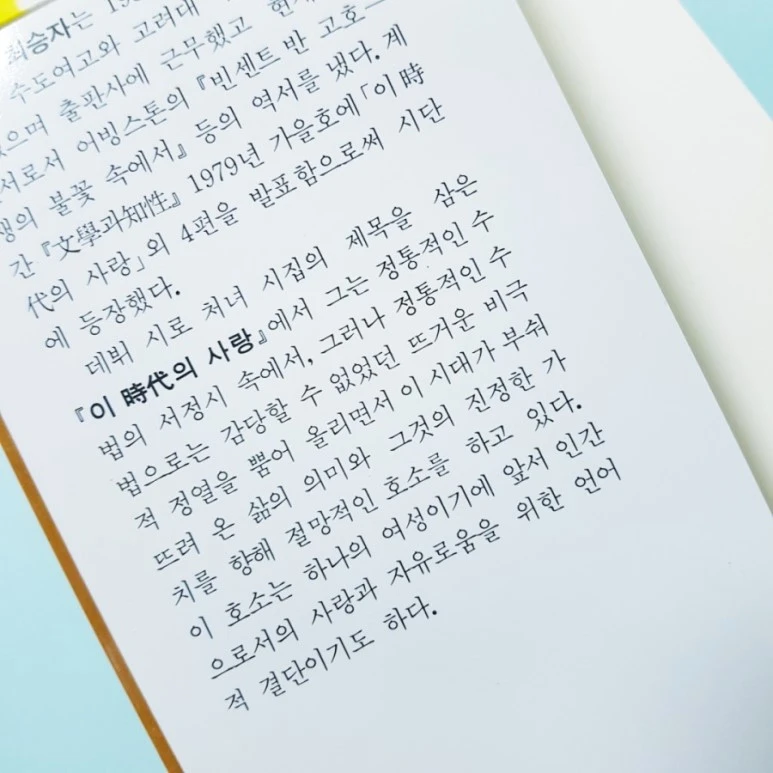 최승자는
수도여고와 고려대
으며 출판사에 근무했고
서로서 어빙스톤의 『빈센트 반 고흐―
생의 불꽃 속에서』 등의 역서를 냈다. 계
간 『文學과知性』 1979년 가을호에 「이 時
代의 사랑」 외 4편을 발표함으로써 시단
에 등장했다.
데뷔 시로 처녀 시집의 제목을 삼은
『이 時代의 사랑』에서 그는 정통적인 수
법의 서정시 속에서, 그러나 정통적인 수
법으로는 감당할 수 없었던 뜨거운 비극
적 정열을 뿜어 올리면서 이 시대가 부숴
뜨려 온 삶의 의미와 그것의 진정한 가
치를 향해 절망적인 호소를 하고 있다.
이 호소는 하나의 여성이기에 앞서 인간
으로서의 사랑과 자유로움을 위한 언어
적 결단이기도 하다.